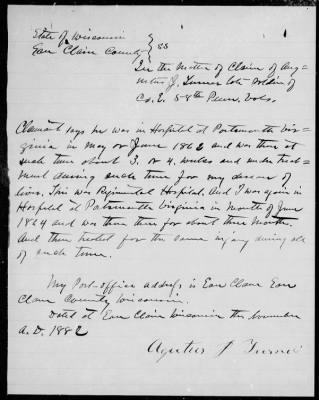 State of Wisconsin
Eau Claire County } SS
In the Matter of Claim of Aug-
ustus J. Turner late Soldier of
Co. E. 58th Penn. Vols.
Claimant says he was in Hospital at Portsmouth Vir-
ginia in may or June 1862 and was there at
such time about 3, or 4, weeks and under treat-
ment during such time for my disease of
liver. This was Regimental Hospital. And I was again in
Hospital at Portsmouth Virginia in month of June
1864 and was there then for about three Months.
And then treated for the same injury during all
of such time.
My Post-office address is Eau Claire Eau
Claire County Wisconsin.
Dated at Eau Claire Wisconsin the November
A.D. 1882
Turner